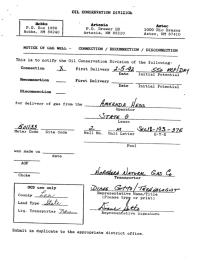 OIL CONSERVATION DIVISION
Hobbs
P.O. Box 1980
Hobbs, NM 88240
Artesia
P.O. Drawer DD
Artesia, NM 88210
Aztec
1000 Rio Brazos
Aztec, NM 87410
NOTICE OF GAS WELL - CONNECTION / RECONNECTION / DISCONNECTION
This is to notify the Oil Conservation Division of the following:
Connection X First Delivery 2-5-92 MCF/DAY
Date Initial Potential
Reconnection First Delivery
Date Initial Potential
Disconnection
for delivery of gas from the Amerada Hess
Operator
State
Lease
Meter Code Site Code Well No. Unit Letter S-T-R
2 M
Pool
was made on
date
AOF
Choke
Natural Gas Co
Transporter
OCD use only
County Lea
Land Type State
Liq. Transporter
Representative Name/Title
(Please type or print)
Representative Signature
Submit in duplicate to the appropriate district office.